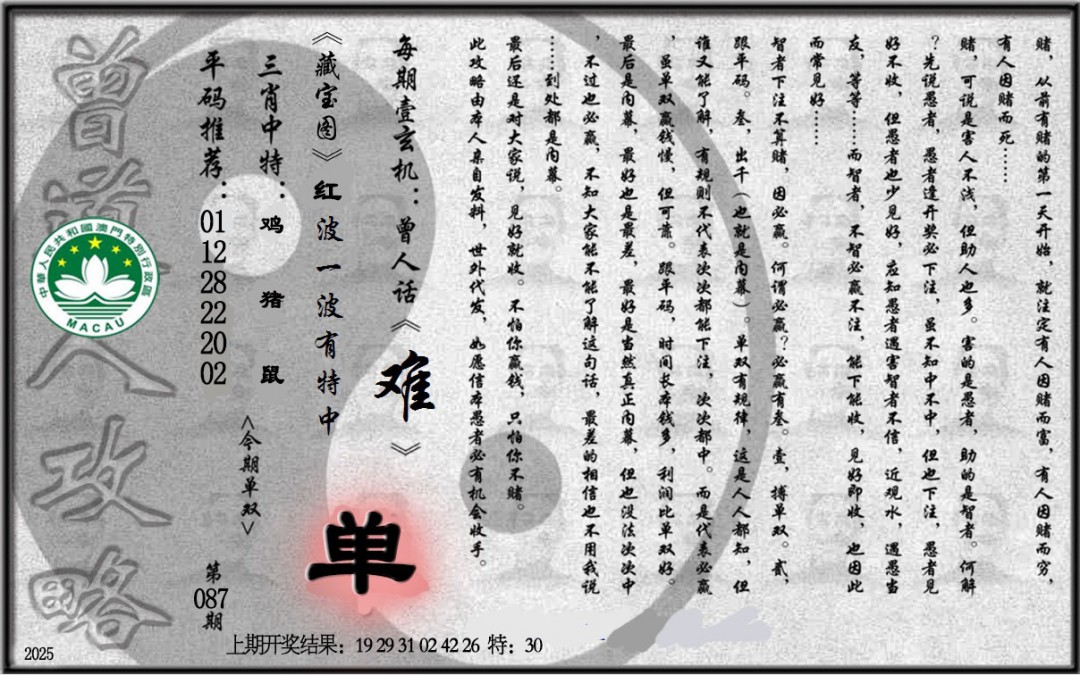 赌，从前有赌的第一天开始，就注定有人因赌而富，有人因赌而穷，
有人因赌而死……
赌，可说是害人不浅，但助人也多。害的是愚者，助的是智者。何解
？先说愚者，愚者逢开奖必下注，虽不知中不中，但也下注，愚者见
好不收，但愚者也少见好，应知愚者遇害智者不信，近观水，遇愚当
友，等等……而智者，不智必赢不注，能下能收，见好即收，也因此
而常见好……
智者下注不算赌，因必赢。何谓必赢？必赢有叁。壹，搏单双。贰，
跟平码。叁，出千（也就是内幕）。单双有规律，这是人人都知，但
谁又能了解，有规则不代表次次都能下注，次次都中。而是代表必赢
，虽单双赢钱慢，但可靠。跟平码，时间长本钱多，利润比单双好。
最后是内幕，最好也是最差，最好是当然真正内幕，但也没法次次中
，不过也必赢，不知大家能不能了解这句话，最差的相信也不用我说
……到处都是内幕。
最后还是对大家说，见好就收。不怕你赢钱，只怕你不赌。
此攻略由本人亲自发料，世外代发，如愿信本愚者必有机会收手。
每期壹玄机：曾人话《难》
《藏宝图》红波一波有特中
单
三肖中特：鸡 猪 鼠
<今期单双>
平码推荐：01 12 28 22 20 02
第087期
曾道人攻略
中華人民共和國澳門特別行政區
MACAU
上期开奖结果：19 29 31 02 42 26 特：30
2025